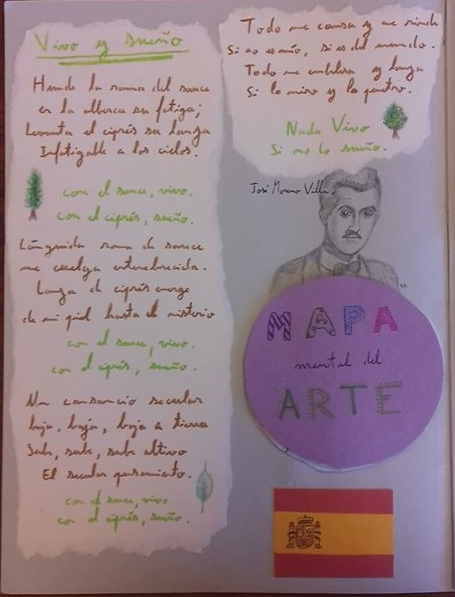 Vivo y sueño
Hunde la rama del sauce
en la alberca su fatiga;
Levanta el ciprés su lanza
Infatigable a los cielos.
con el sauce, vivo.
con el ciprés, sueño.
Lánguida rama de sauce
me cuelga entenebrecida.
Lanza de ciprés emerge
de mi piel hasta el misterio
con el sauce, vivo.
con el ciprés, sueño.
Un cansancio secular
baja, baja, baja a tierra
Sube, sube, sube altivo
El secular pensamiento.
con el sauce, vivo
con el ciprés, sueño.
Todo me cansa y me rinde
Si no es mío, si es del mundo.
Todo me y lanza
Si lo miro y lo
Nada Vivo
Si no lo sueño.
José Moreno Villa
MAPA
mental del
ARTE